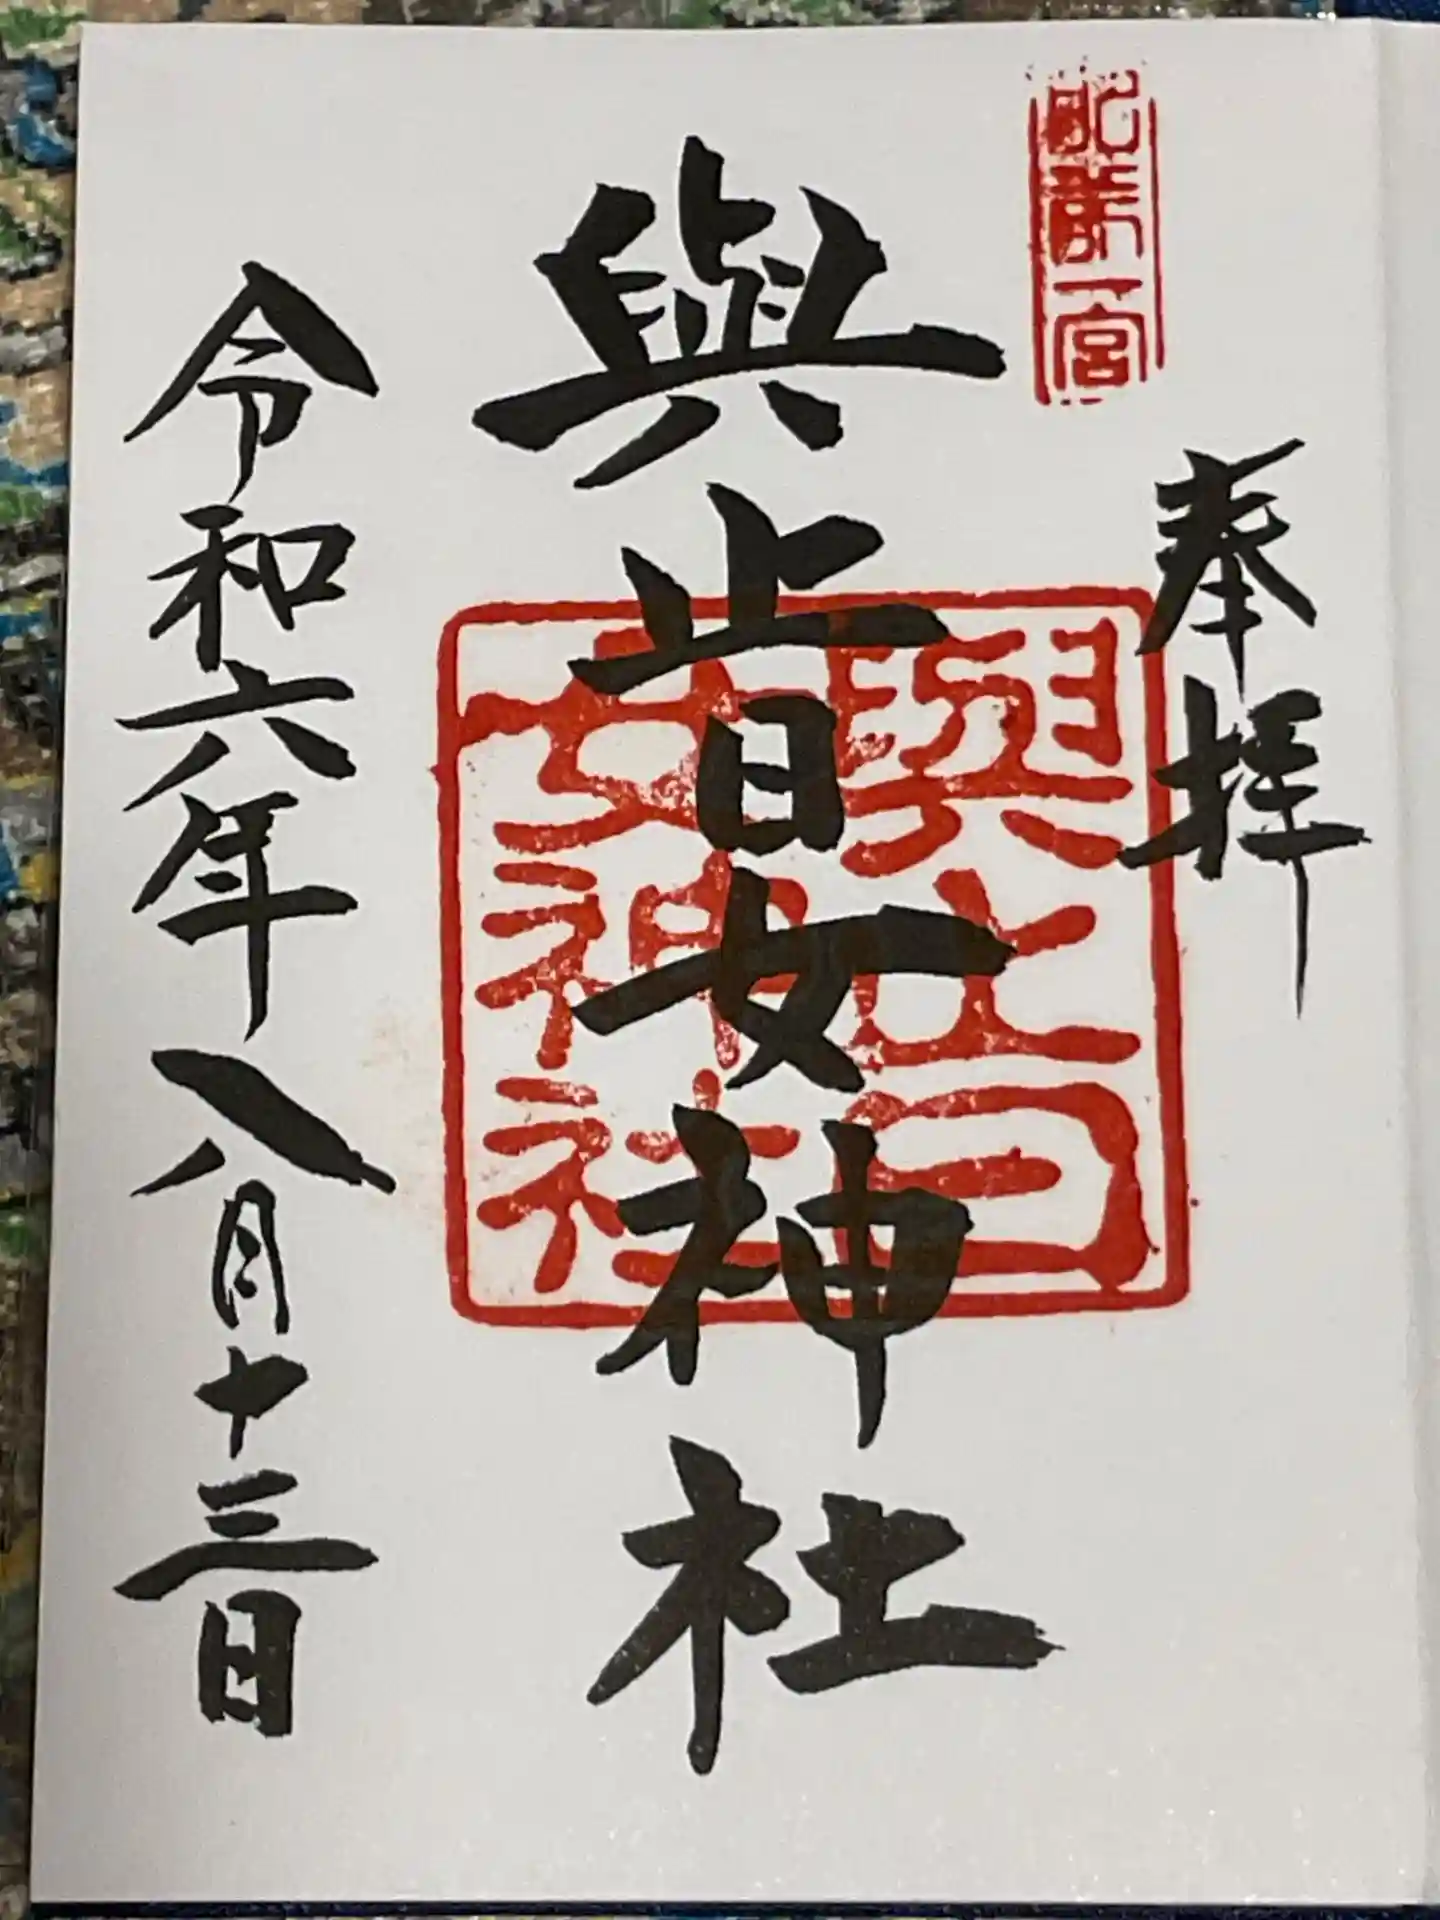 肥前一宮
奉拝
與止日女神社
與止日女神社
令和六年八月十三日